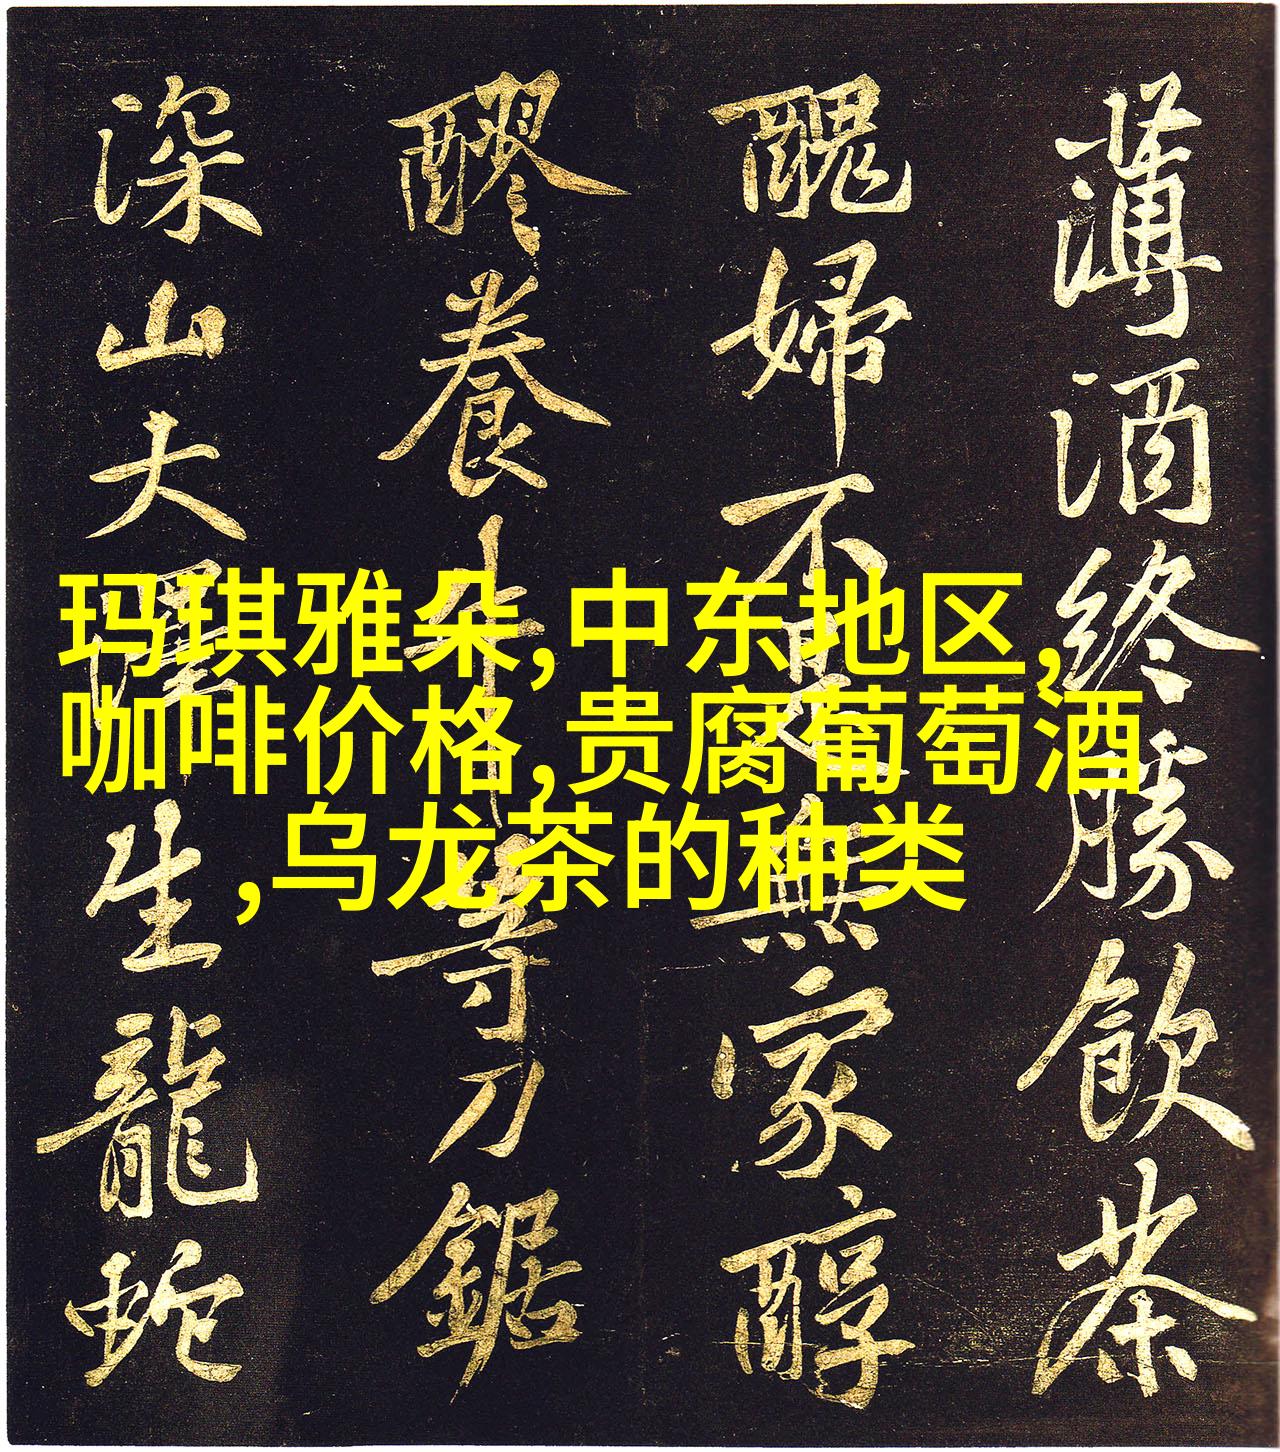 薄酒終勝飲茶
醜婦不是無家醇
醪養牛等刀鋸
深山大澤生龍蛇
玛琪雅朵,中东地区,
咖啡价格,贵腐葡萄酒
,乌龙茶的种类